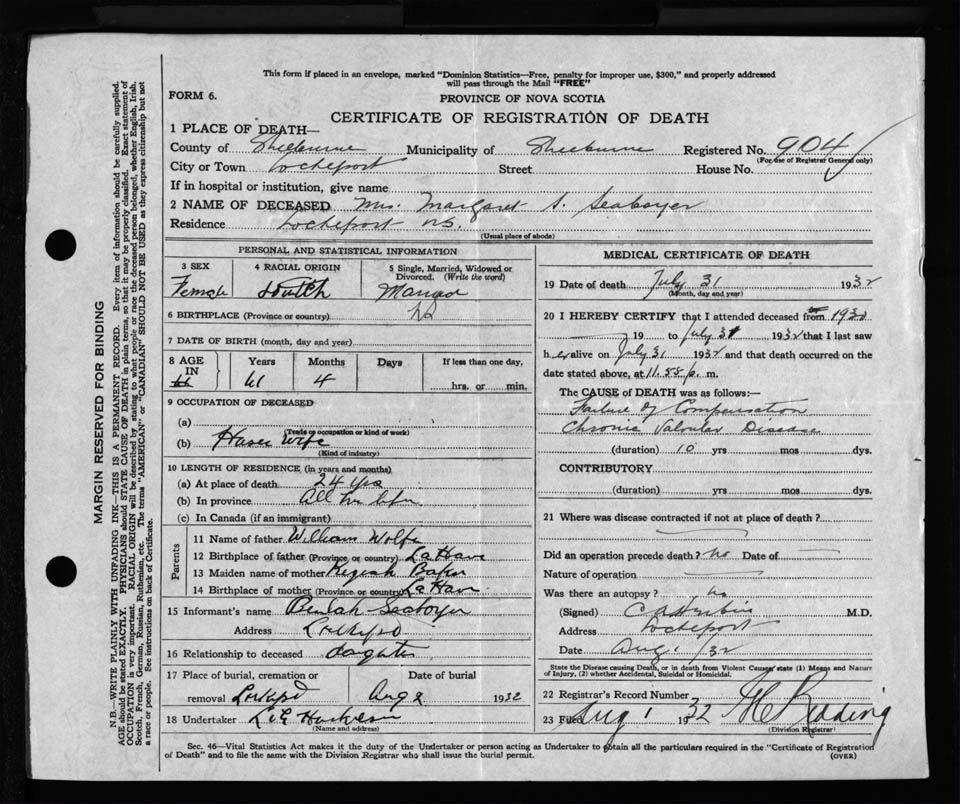 This form if placed in an envelope, marked "Dominion Statistics—Free, penalty for improper use, $300," and properly addressed
will pass through the Mail "FREE"
FORM 6.
PROVINCE OF NOVA SCOTIA
CERTIFICATE OF REGISTRATION OF DEATH
1 PLACE OF DEATH—
County of Shelburne Municipality of Shelburne Registered No. 904
(For use of Registrar General only)
City or Town Lockeport Street House No.
If in hospital or institution, give name
2 NAME OF DECEASED Mrs. Margaret A. Seaboyer
Residence Lockeport N.S.
(Usual place of abode)
PERSONAL AND STATISTICAL INFORMATION
3 SEX 4 RACIAL ORIGIN 5 Single, Married, Widowed or
Divorced. (Write the word)
Female Dutch Married
6 BIRTHPLACE (Province or country) NS
7 DATE OF BIRTH (month, day and year)
8 AGE Years Months Days If less than one day,
IN 61 4
hrs. or min.
9 OCCUPATION OF DECEASED
(a)
(Trade or occupation or kind of work)
(b) House Wife
(Kind of industry)
10 LENGTH OF RESIDENCE (in years and months)
(a) At place of death 24 yrs
(b) In province All her life
(c) In Canada (if an immigrant)
Parents
11 Name of father William Wolfe
12 Birthplace of father (Province or country) LaHave
13 Maiden name of mother Keziah Baker
14 Birthplace of mother (Province or country) LaHave
15 Informant's name Beulah Seaboyer
Address Lockeport
16 Relationship to deceased daughter
17 Place of burial, cremation or Date of burial
removal Lockeport Aug 2 1932
18 Undertaker
(Name and address)
MEDICAL CERTIFICATE OF DEATH
19 Date of death July 31 1932
(Month, day and year)
20 I HEREBY CERTIFY that I attended deceased from 1930
19 to July 31 1932 that I last saw
her alive on July 31 1932 and that death occurred on the
date stated above, at 11.55 p. m.
The CAUSE of DEATH was as follows:—
Failure of Compensation
Chronic Valvular Disease
(duration) 10 yrs mos dys.
CONTRIBUTORY
(duration) yrs mos dys.
21 Where was disease contracted if not at place of death?
Did an operation precede death? no Date of
Nature of operation
Was there an autopsy? no
(Signed) M.D.
Address Lockeport
Date Aug 1/32
State the Disease causing Death, or in death from Violent Causes state (1) Means and Nature
of Injury, (2) whether Accidental, Suicidal or Homicidal.
22 Registrar's Record Number 7
23 Filed Aug 1 1932
(Division Registrar)
Sec. 46—Vital Statistics Act makes it the duty of the Undertaker or person acting as Undertaker to obtain all the particulars required in the "Certificate of Registration
of Death" and to file the same with the Division Registrar who shall issue the burial permit.
(OVER)
MARGIN RESERVED FOR BINDING
N.B.—WRITE PLAINLY WITH UNFADING INK—THIS IS A PERMANENT RECORD. Every item of information should be carefully supplied.
AGE should be stated EXACTLY. PHYSICIANS should STATE CAUSE OF DEATH in plain terms, so that it may be properly classified. Exact statement of
OCCUPATION is very important. RACIAL ORIGIN will be described by stating to what people or race the deceased person belonged, whether English, Irish,
Scotch, French, German, Russian, Ruthenian, etc. The terms "AMERICAN" or "CANADIAN" SHOULD NOT BE USED as they express citizenship but not
a race or people. See instructions on back of Certificate.